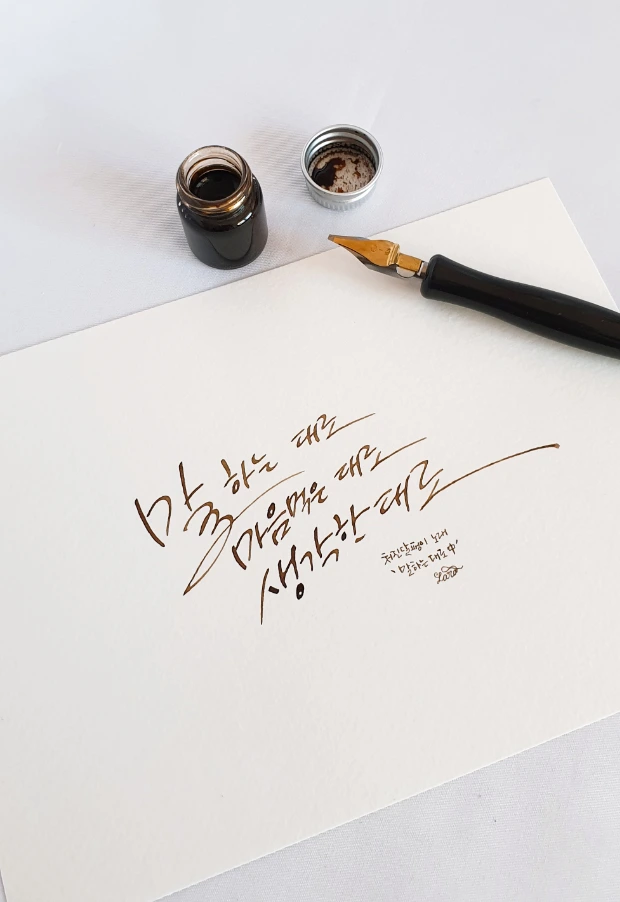 말 하는 대로
마음먹은 대로
생각한 대로
처진달팽이 노래
'말하는 대로 中'
Lara